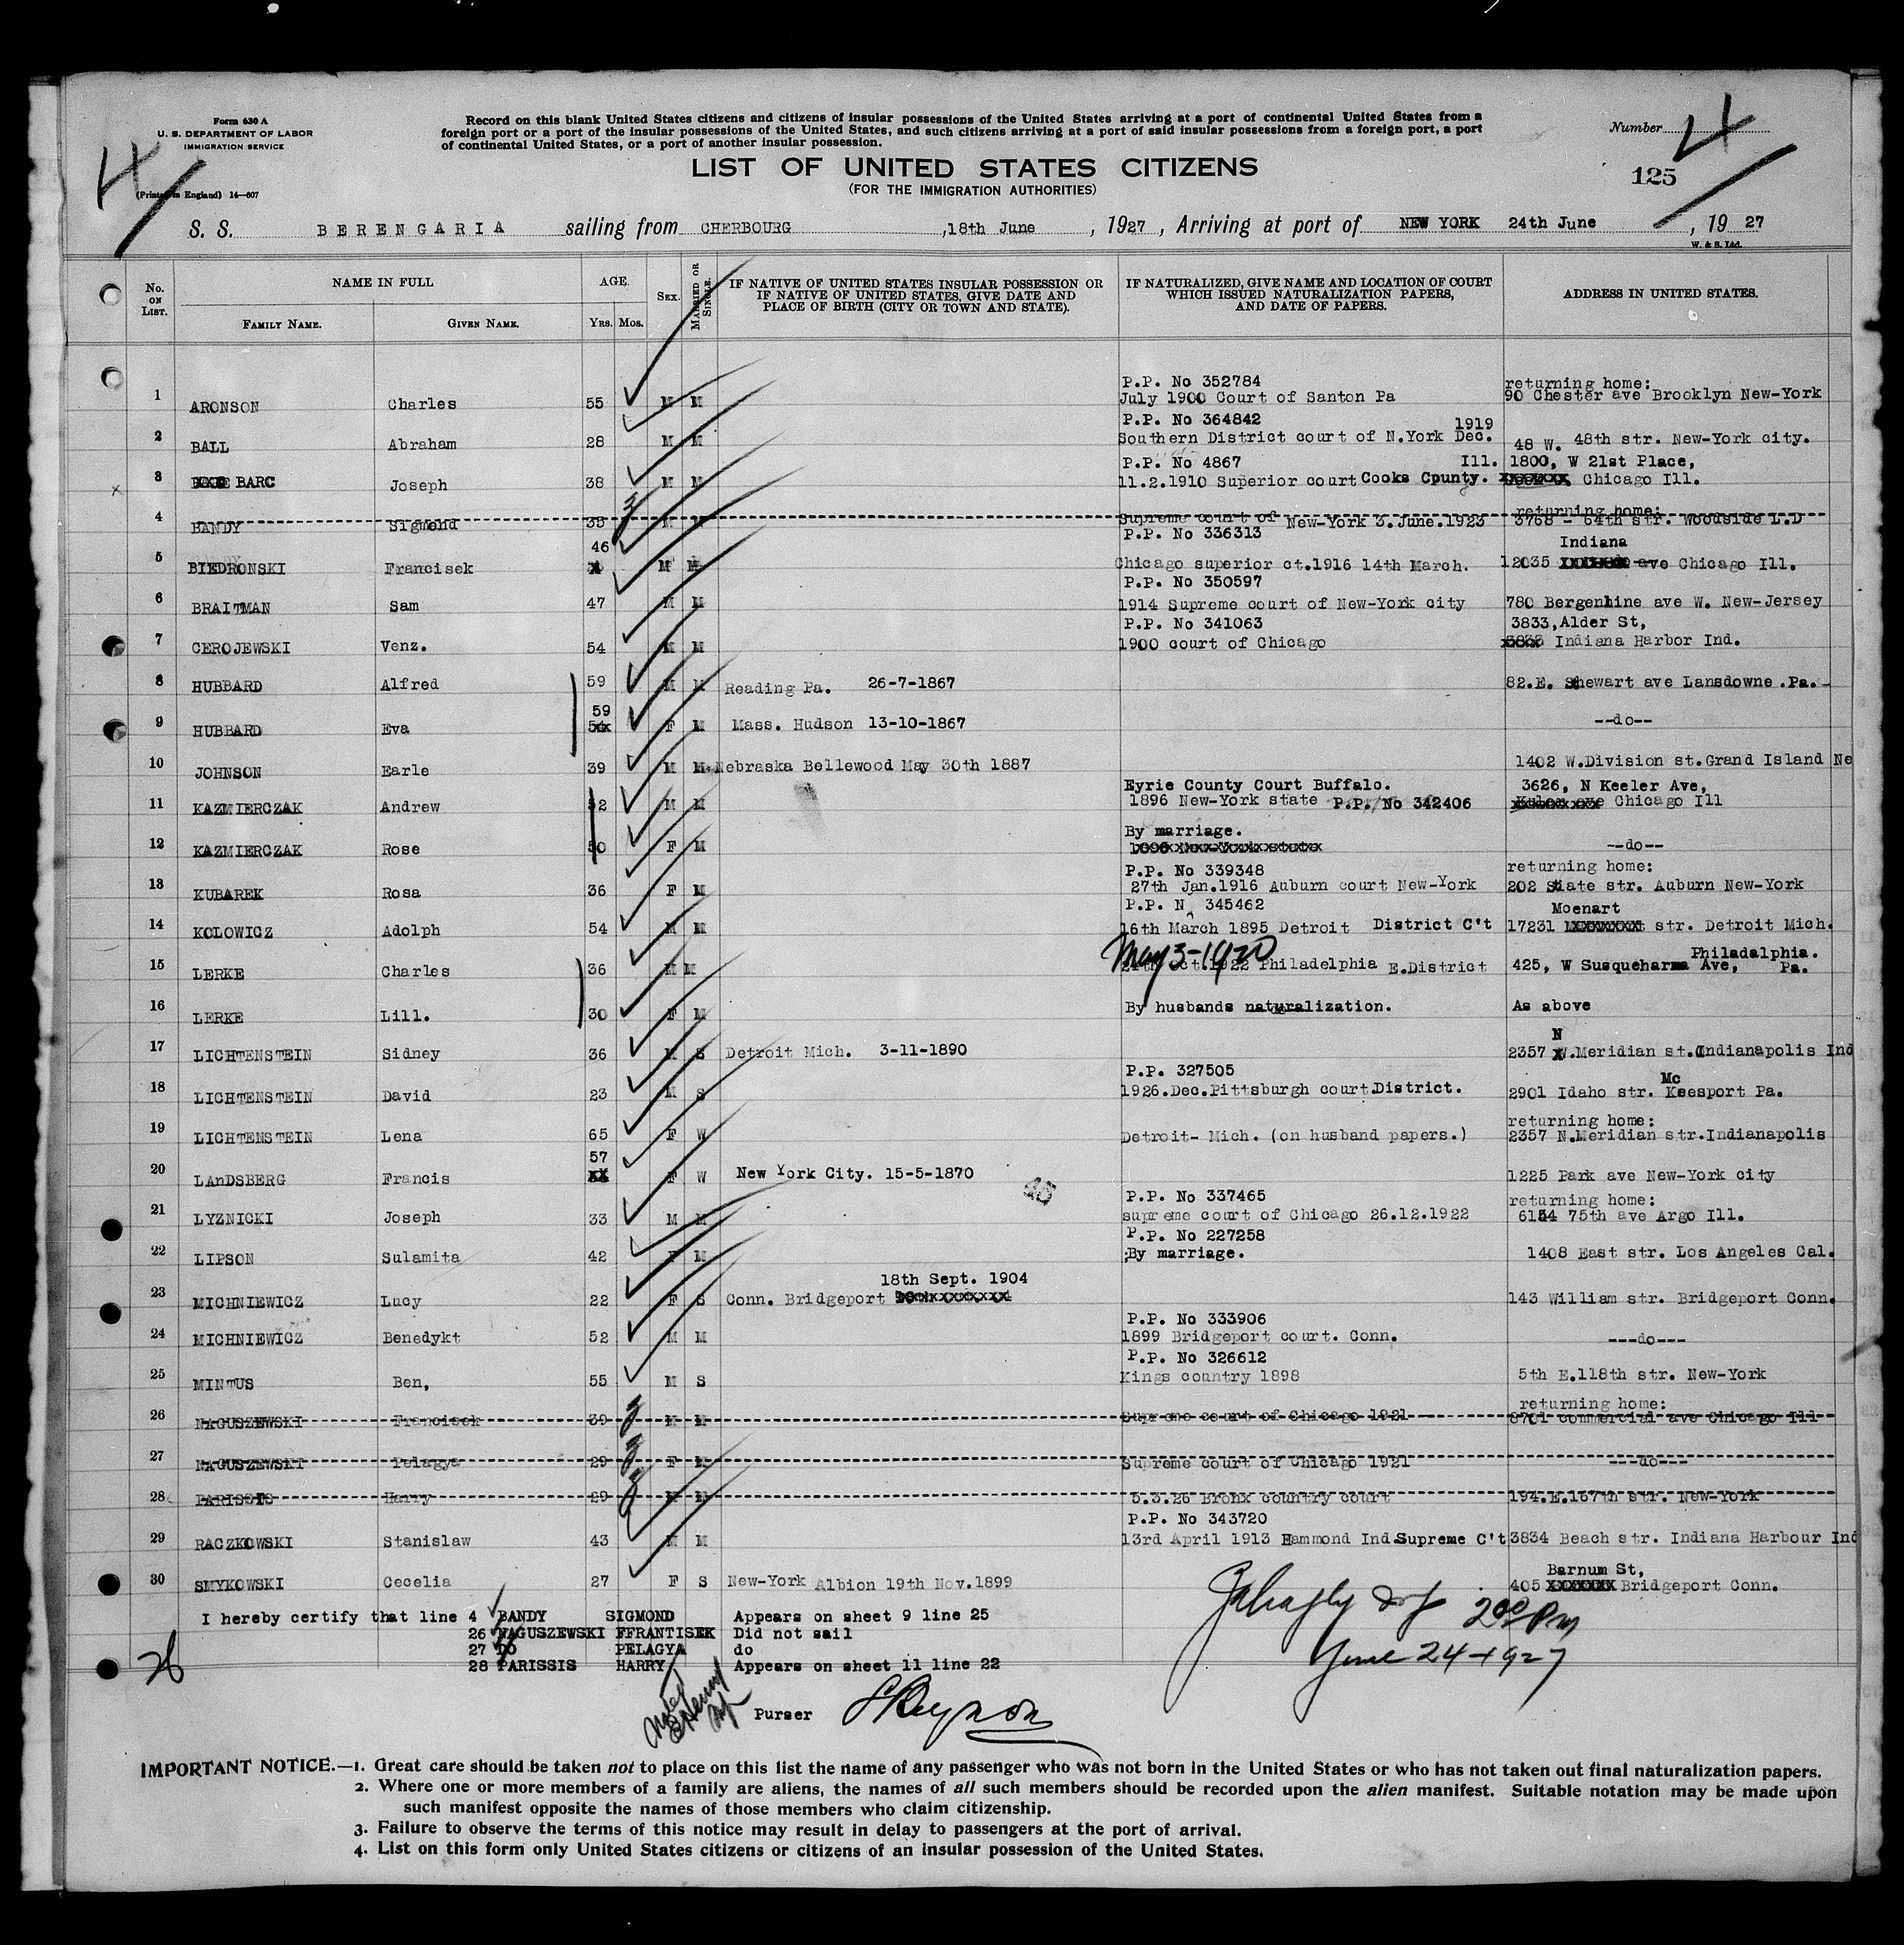 Form 630 A
U. S. DEPARTMENT OF LABOR
IMMIGRATION SERVICE
(Printed in England) 14—607
4
Record on this blank United States citizens and citizens of insular possessions of the United States arriving at a port of continental United States from a
foreign port or a port of the insular possessions of the United States, and such citizens arriving at a port of said insular possessions from a foreign port, a port
of continental United States, or a port of another insular possession.
Number 4
125
LIST OF UNITED STATES CITIZENS
(FOR THE IMMIGRATION AUTHORITIES)
S. S. BERENGARIA sailing from CHERBOURG ,18th June , 1927 , Arriving at port of NEW YORK 24th June , 19 27
W. & S. Ltd.
No. ON LIST. NAME IN FULL AGE. SEX. MARRIED OR SINGLE. IF NATIVE OF UNITED STATES INSULAR POSSESSION OR IF NATIVE OF UNITED STATES, GIVE DATE AND PLACE OF BIRTH (CITY OR TOWN AND STATE). IF NATURALIZED, GIVE NAME AND LOCATION OF COURT WHICH ISSUED NATURALIZATION PAPERS, AND DATE OF PAPERS. ADDRESS IN UNITED STATES.
FAMILY NAME. GIVEN NAME. YRS. MOS.
P.P. No 352784 returning home:
1 ARONSON Charles 55 M M July 1900 Court of Santon Pa 90 Chester ave Brooklyn New-York
P.P. No 364842 1919
2 BALL Abraham 28 M M Southern District court of N.York Dec. 48 W. 48th str. New-York city.
P.P. No 4867 Ill. 1800, W 21st Place,
3 BARC Joseph 38 M M 11.2.1910 Superior court Cooks Cpunty. Chicago Ill.
returning home:
4 BANDY Sigmond 35 M M Supreme court of New-York 3.June.1923 3768 - 64th str. Woodside L.D
P.P. No 336313
46 Indiana
5 BIEDRONSKI Francisek M M Chicago superior ct.1916 14th March. 12035 ave Chicago Ill.
P.P. No 350597
6 BRAITMAN Sam 47 M M 1914 Supreme court of New-York city 780 Bergenhine ave W. New-Jersey
P.P. No 341063 3833,Alder St,
7 CEROJEWSKI Venz. 54 M M 1900 court of Chicago Indiana Harbor Ind.
8 HUBBARD Alfred 59 M M Reading Pa. 26-7-1867 82.E. Shewart ave Lansdowne .Pa.
59
9 HUBBARD Eva F M Mass. Hudson 13-10-1867 --do--
10 JOHNSON Earle 39 M M Nebraska Bellewood May 30th 1887 1402 W.Division st.Grand Island Ne
Eyrie County Court Buffalo. 3626, N Keeler Ave,
11 KAZMIERCZAK Andrew 52 M M 1896 New-York state P.P. No 342406 Chicago Ill
By marriage.
12 KAZMIERCZAK Rose 50 F M --do--
P.P. No 339348 returning home:
13 KUBAREK Rosa 36 F M 27th Jan.1916 Auburn court New-York 202 State str. Auburn New-York
P.P. N 345462 Moenart
14 KOLOWICZ Adolph 54 M M 16th March 1895 Detroit District C't 17231 str. Detroit Mich.
May 3-1920 Philadalphia.
15 LERKE Charles 36 M M 24th Oct.1922 Philadelphia E.District 425, W Susqueharma Ave, Pa.
16 LERKE Lill. 30 F M By husbands naturalization. As above
N
17 LICHTENSTEIN Sidney 36 M S Detroit Mich. 3-11-1890 2357 .Meridian st.Indianapolis Ind
P.P. 327505 Mc
18 LICHTENSTEIN David 23 M S 1926.Dec.Pittsburgh court.District. 2901 Idaho str. Keesport Pa.
returning home:
19 LICHTENSTEIN Lena 65 F W Detroit- Mich. (on husband papers.) 2357 N.Meridian str.Indianapolis
57
20 LAnDSBERG Francis F W New York City. 15-5-1870 1225 Park ave New-York city
P.P. No 337465 returning home:
21 LYZNICKI Joseph 33 M M supreme court of Chicago 26.12.1922 6154 75th ave Argo Ill.
P.P. No 227258
22 LIPSON Sulamita 42 F M ;By marriage. 1408 East str. Los Angeles Cal.
18th Sept. 1904
23 MICHNIEWICZ Lucy 22 F S Conn. Bridgeport 143 William str. Bridgeport Conn.
P.P. No 333906
24 MICHNIEWICZ Benedykt 52 M M 1899 Bridgeport court. Conn. ---do---
P.P. No 326612
25 MINTUS Ben, 55 M S Kings country 1898 5th E.118th str. New-York
returning home:
26 NAGUSZEWSKI Francisek 39 M M Supreme court of Chicago 1921 8701 commercial ave Chicago Ill
27 NAGUSZEWSKI Pelagya 29 F M Supreme court of Chicago 1921 ---do---
28 PARISSIS Harry 29 M M 5.3.26 Bronx country court 194.E.167th str. New-York
P.P. No 343720
29 RACZKOWSKI Stanislaw 43 M M 13rd April 1913 Hammond Ind.Supreme C't 3834 Beach str. Indiana Harbour Ind
Barnum St,
30 SMYKOWSKI Cecelia 27 F S New-York Albion 19th Nov.1899 405 Bridgeport Conn.
I hereby certify that line 4 BANDY SIGMOND Appears on sheet 9 line 25
26 NAGUSZEWSKI FFRANTISEK Did not sail
27 DO PELAGYA do
28 PARISSIS HARRY Appears on sheet 11 line 22
26
2 00 Pm
June 24-1927
Purser
IMPORTANT NOTICE.—1. Great care should be taken not to place on this list the name of any passenger who was not born in the United States or who has not taken out final naturalization papers.
2. Where one or more members of a family are aliens, the names of all such members should be recorded upon the alien manifest. Suitable notation may be made upon
such manifest opposite the names of those members who claim citizenship.
3. Failure to observe the terms of this notice may result in delay to passengers at the port of arrival.
4. List on this form only United States citizens or citizens of an insular possession of the United States.